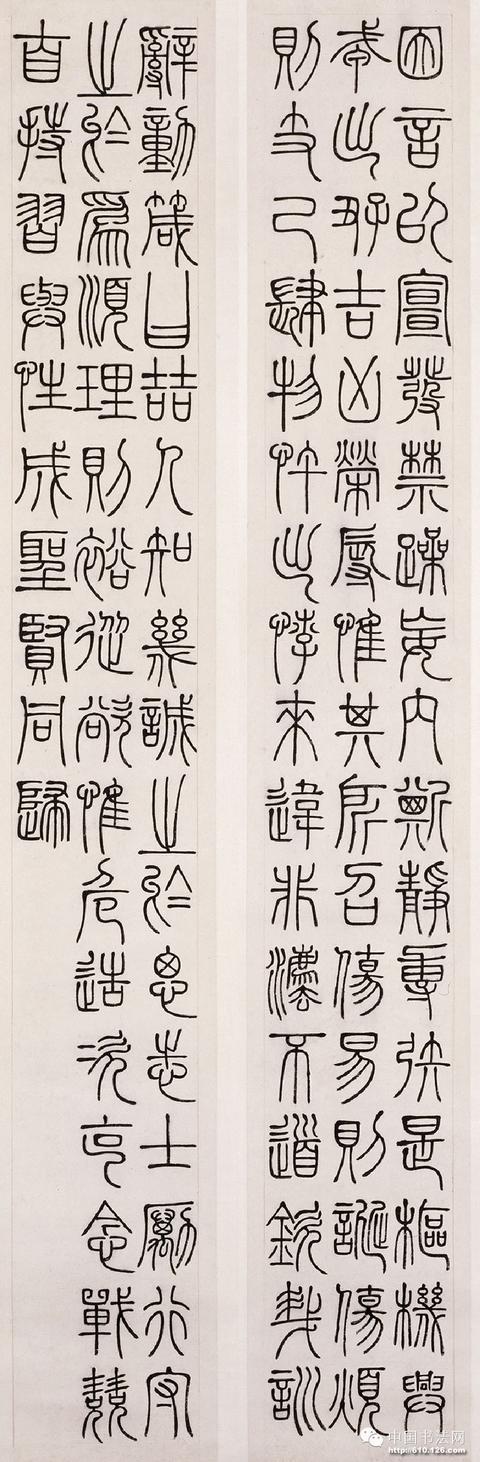 因言以宣發禁躁妄內斯靜專矧是樞機興
戎出好吉凶榮辱惟其所召傷易則誕傷煩
則支己肆物忤出悖來違非灋不道欽哉訓
辭動箴曰喆人知幾誠之於思志士勵行守
之於爲順理則裕從欲惟危造次克念戰兢
自持習與性成聖賢同歸
中国书法网
http://610.126.com